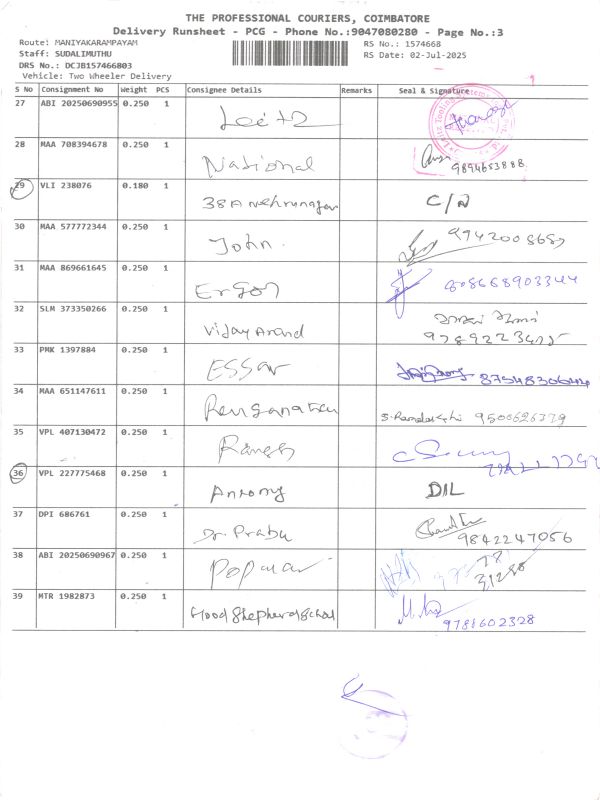 THE PROFESSIONAL COURIERS, COIMBATORE
Delivery Runsheet - PCG - Phone No.:9047080280 - Page No.:3
Route: MANIYAKARAMPAYAM
Staff: SUDALIMUTHU
DRS No.: DCJB157466803
Vehicle: Two Wheeler Delivery
RS No.: 1574668
RS Date: 02-Jul-2025
S No Consignment No Weight PCS Consignee Details Remarks Seal & Signature
27 ABI 20250690955 0.250 1
28 MAA 708394678 0.250 1 National 9894653888
29 VLI 238076 0.180 1 38A Nehrunagar C/A
30 MAA 577772344 0.250 1 John. 9942008687
31 MAA 869661645 0.250 1 Ergon
32 SLM 373350266 0.250 1 Vijay Anand
33 PMK 1397884 0.250 1 ESSar
34 MAA 651147611 0.250 1 Renganathan 9500626779
35 VPL 407130472 0.250 1
36 VPL 227775468 0.250 1 Antony DIL
37 DPI 686761 0.250 1 Dr. Prabu 9842247056
38 ABI 20250690967 0.250 1 Popular
39 MTR 1982873 0.250 1 Good Shepherd School 9781602328